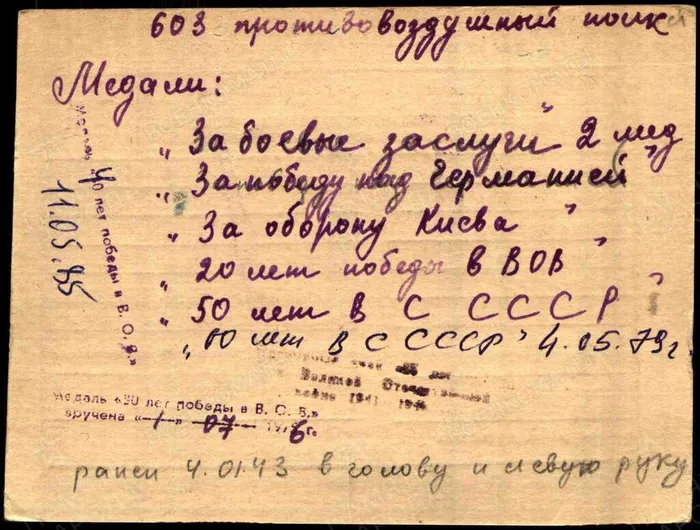 603 противовоздушный полк
Медали:
„За боевые заслуги" 2 мед
„За победу над Германией"
„За оборону Киева"
„20 лет победы в ВОВ"
„50 лет В С СССР"
„60 лет В С СССР" 4.05.79 г
25 лет
Великой Отечественной
войне 1941 1945
медаль «30 лет победы в В. О. В.»
вручена «1» 07 1976 г.
ранен 4.01.43 в голову и левую руку
Медаль 40 лет победы в В. О. В.»
11.05.85